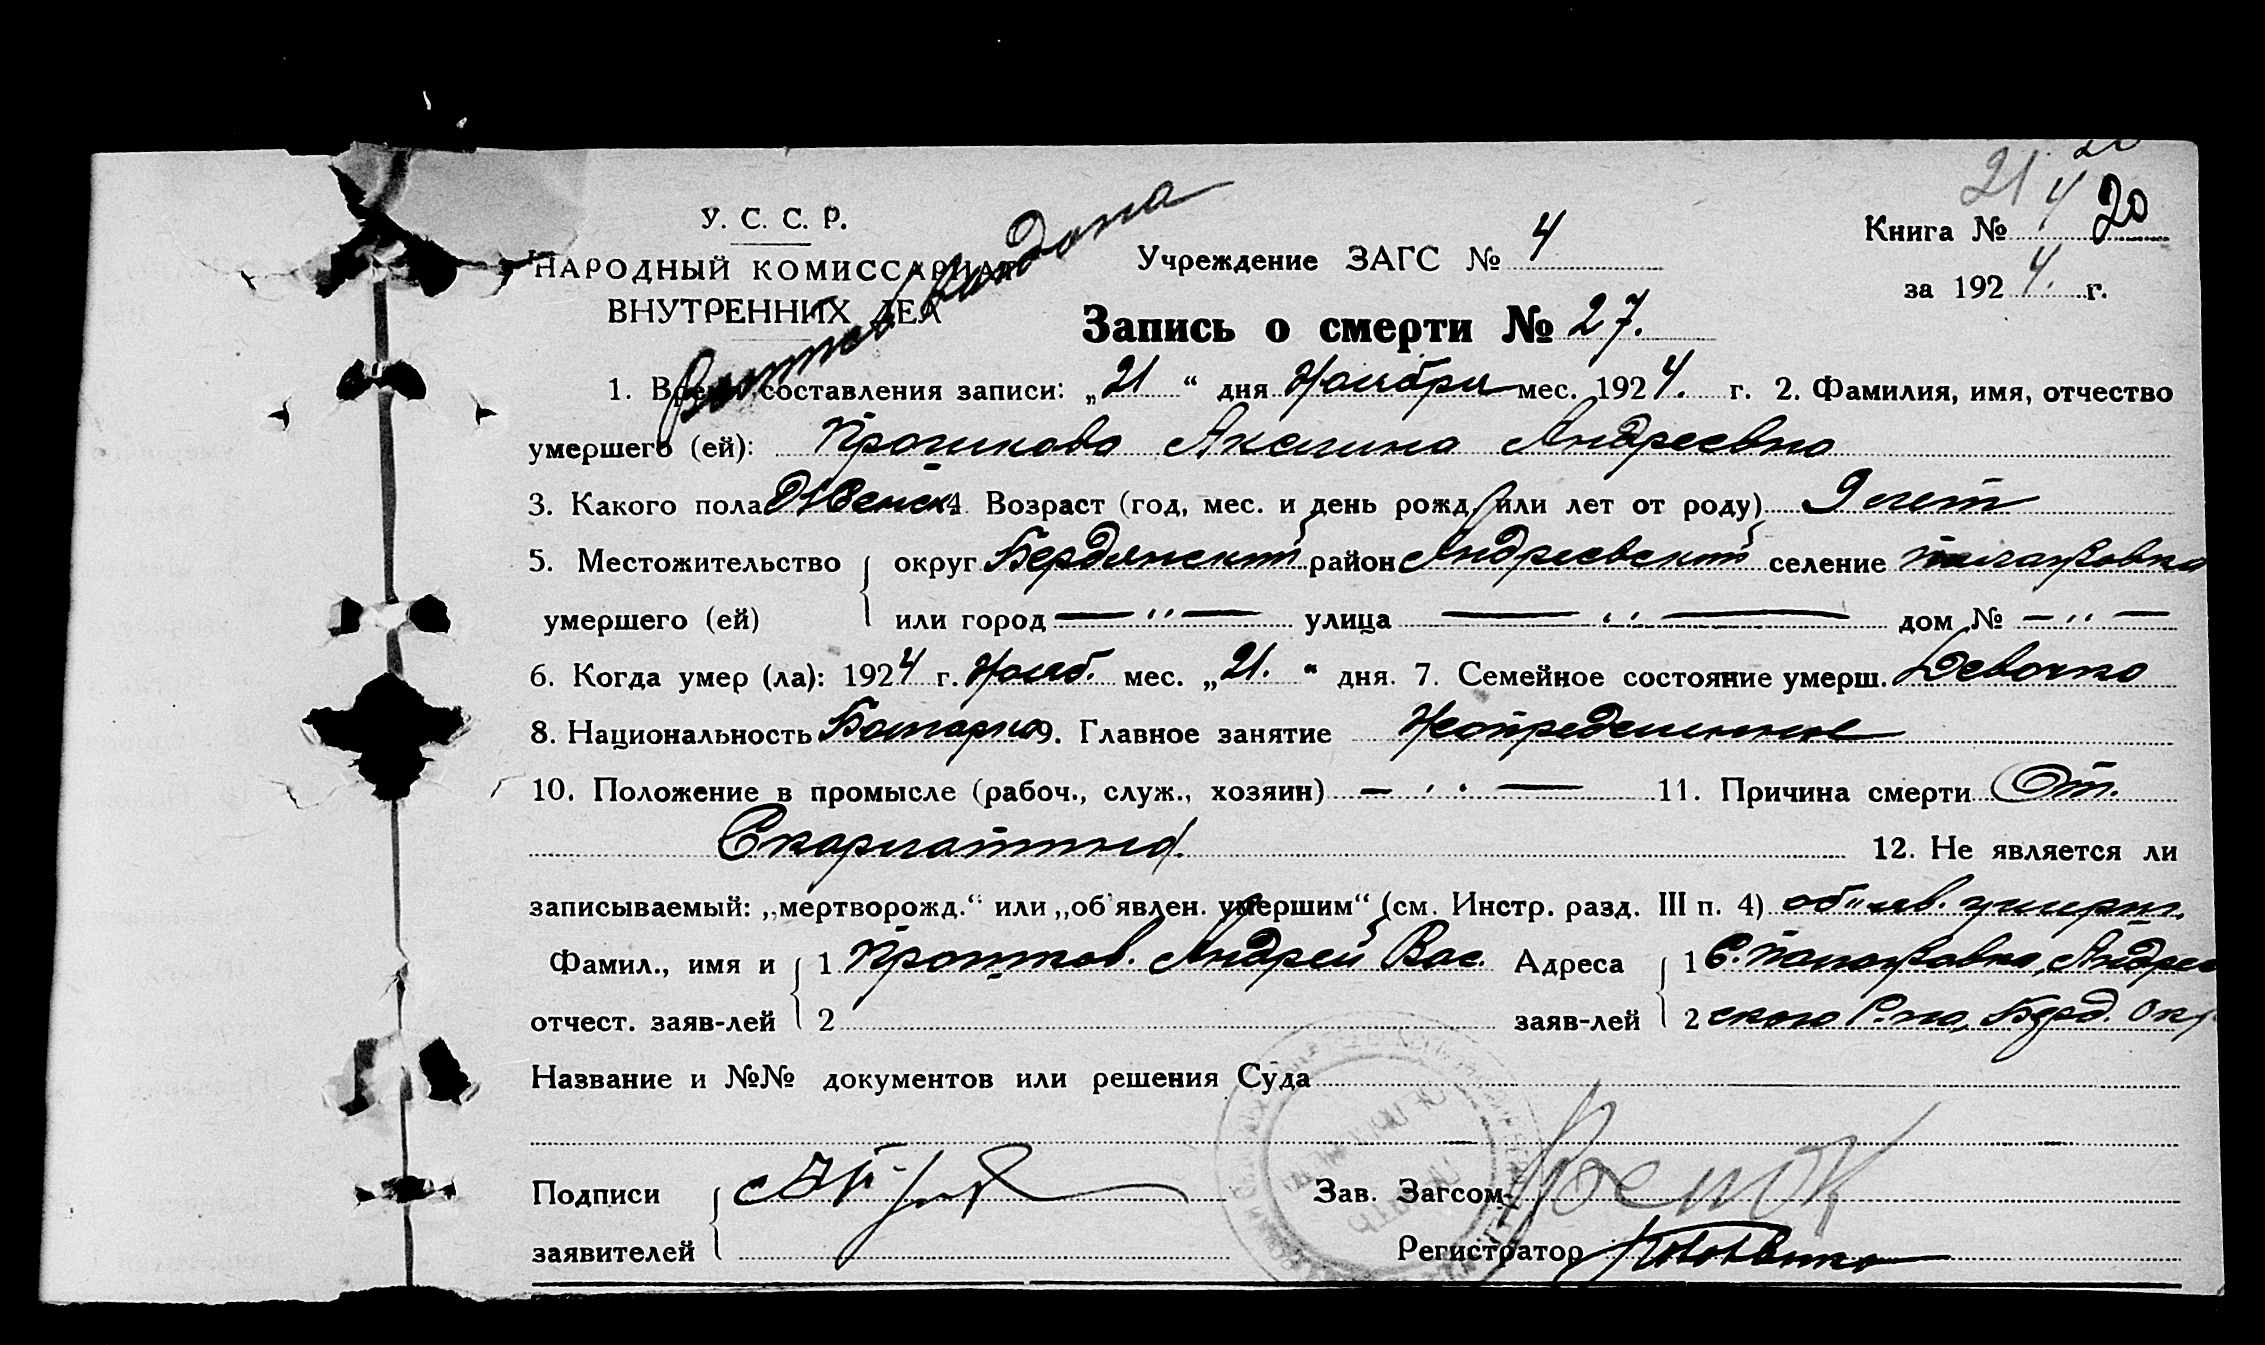 21 4 20
У. С. С. Р.
НАРОДНЫЙ КОМИССАРИАТ
ВНУТРЕННИХ ДЕЛ
Учреждение ЗАГС № 4
Книга №
за 1924. г.
Запись о смерти № 27.
1. Время составления записи: „21“ дня Ноября мес. 1924. г. 2. Фамилия, имя, отчество
умершего (ей): Акилина Андреевна
3. Какого пола Женск. 4. Возраст (год, мес. и день рожд. или лет от роду) 9 лет
5. Местожительство округ Бердянский район Андреевский селение
умершего (ей) или город — ,, — улица — ,, — дом № — ,, —
6. Когда умер (ла): 1924 г. Нояб. мес. „21.“ дня. 7. Семейное состояние умерш. Девочка
8. Национальность Болгарка 9. Главное занятие
10. Положение в промысле (рабоч., служ., хозяин) — ,, — 11. Причина смерти От.
Скарлатины. 12. Не является ли
записываемый: „мертворожд.“ или „об'явлен. умершим“ (см. Инстр. разд. III п. 4) об"яв. умерш.
Фамил., имя и 1 Андрей Вас. Адреса 1 С.
отчест. заяв-лей 2 заяв-лей 2 ского Р-на, Берд. Окр
Название и №№ документов или решения Суда
Подписи Зав. Загсом
заявителей Регистратор